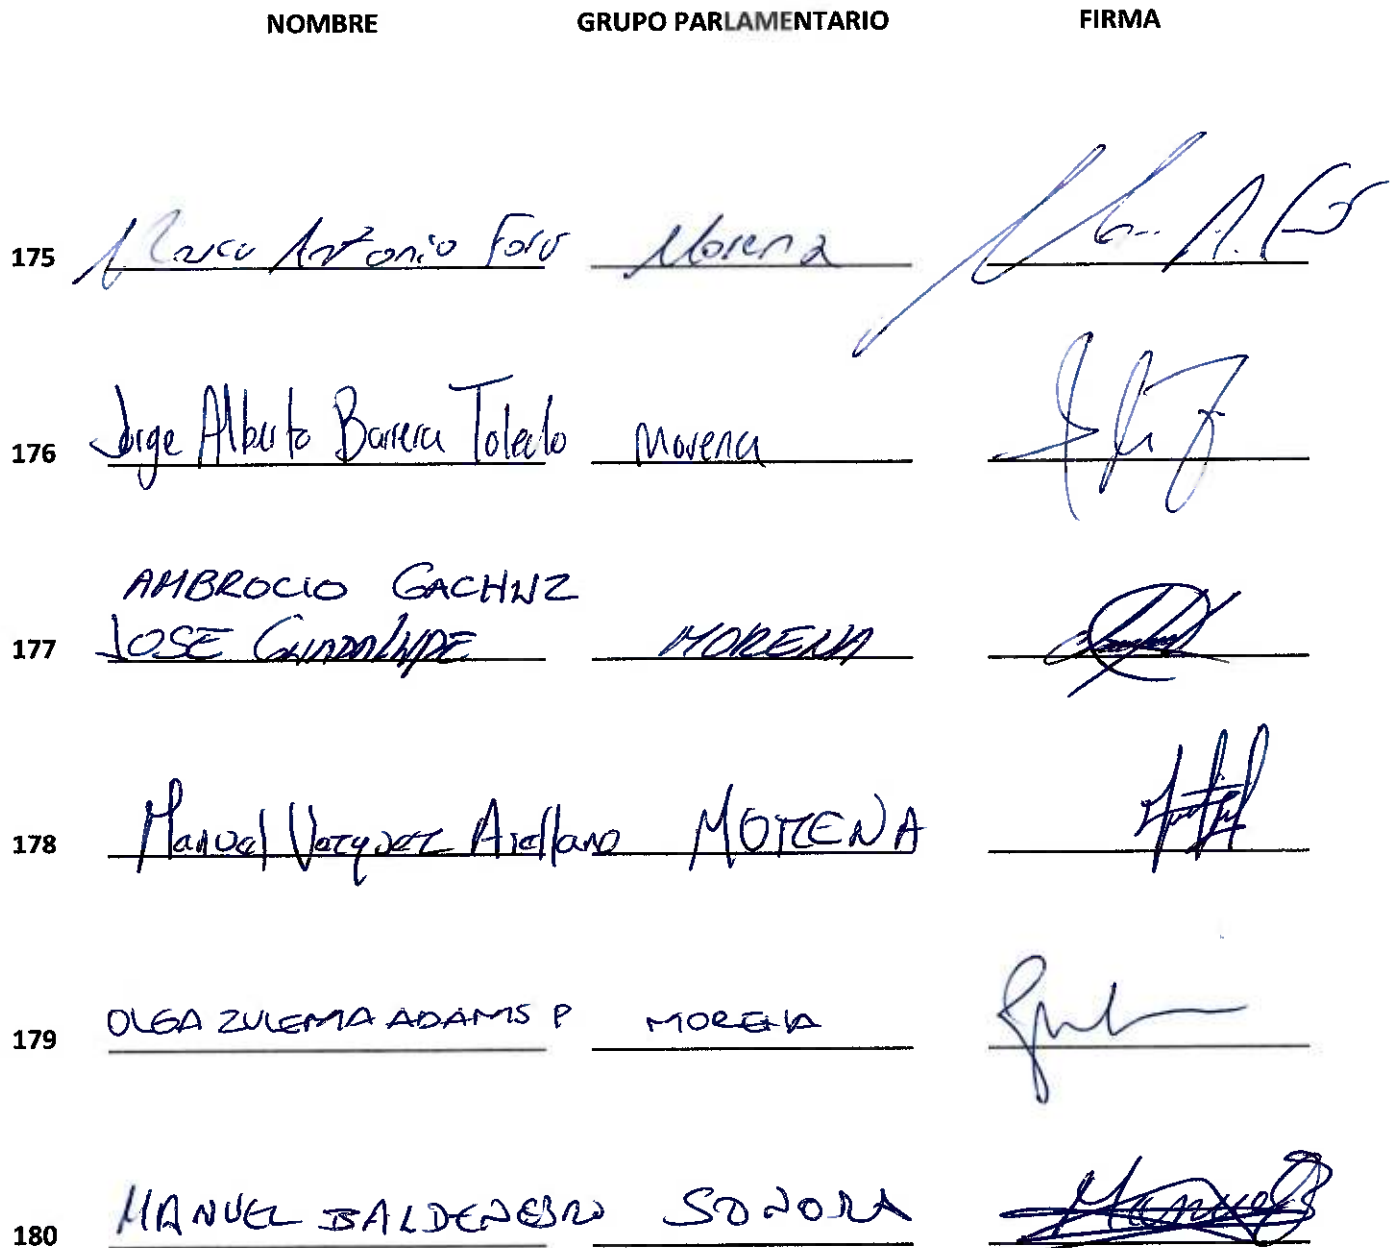 NOMBRE GRUPO PARLAMENTARIO FIRMA
175 Marco Antonio Morena
176 Jorge Alberto Barrera Toledo Morena
AMBROCIO GACHUZ
177 JOSE GUADALUPE MORENA
178 Manuel Vazquez Arellano MORENA
179 OLGA ZULEMA ADAMS P MORENA
180 MANUEL BALDENEBRO SONORA